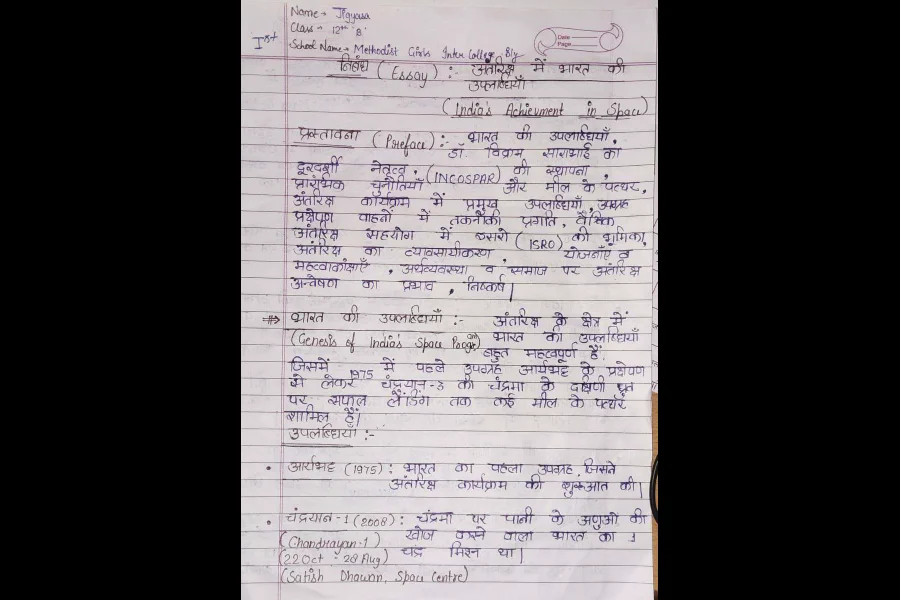 Name → Jigyasa
Class - 12th 'B'
Ist
School Name → Methodist Girls Inter College, Bly
Date
Page
निबंध (Essay) :- अंतरिक्ष में भारत की
उपलब्धियाँ
(India's Achievment in Space)
प्रस्तावना (Preface) :- भारत की उपलब्धियाँ,
डॉ. विक्रम साराभाई का
दूरदर्शी नेतृत्व, (INCOSPAR) की स्थापना,
प्रारंभिक चुनौतियाँ और मील के पत्थर,
अंतरिक्ष कार्यक्रम में प्रमुख उपलब्धियाँ, उपग्रह
प्रक्षेपण वाहनों में तकनीकी प्रगति, वैश्विक
अंतरिक्ष सहयोग में इसरो (ISRO) की भूमिका,
अंतरिक्ष का व्यावसायीकरण, योजनाएँ व
महत्वाकांक्षाएँ, अर्थव्यवस्था व समाज पर अंतरिक्ष
अन्वेषण का प्रभाव, निष्कर्ष|
⇒ भारत की उपलब्धियाँ :- अंतरिक्ष के क्षेत्र में
(Genesis of India's Space भारत की उपलब्धियाँ
बहुत महत्वपूर्ण हैं
जिसमें 1975 में पहले उपग्रह आर्यभट्ट के प्रक्षेपण
से लेकर चंद्रयान-3 की चंद्रमा के दक्षिणी ध्रुव
पर सफल लैंडिंग तक कई मील के पत्थर
शामिल हैं|
उपलब्धियाँ :-
• आर्यभट्ट (1975) : भारत का पहला उपग्रह, जिसने
अंतरिक्ष कार्यक्रम की शुरूआत की|
• चंद्रयान-1 (2008) : चंद्रमा पर पानी के अणुओं की
(Chandrayan-1) खोज करने वाला भारत का 1
(22 Oct - 28 Aug) चंद्र मिशन था|
(Satish Dhawan, Space Centre)